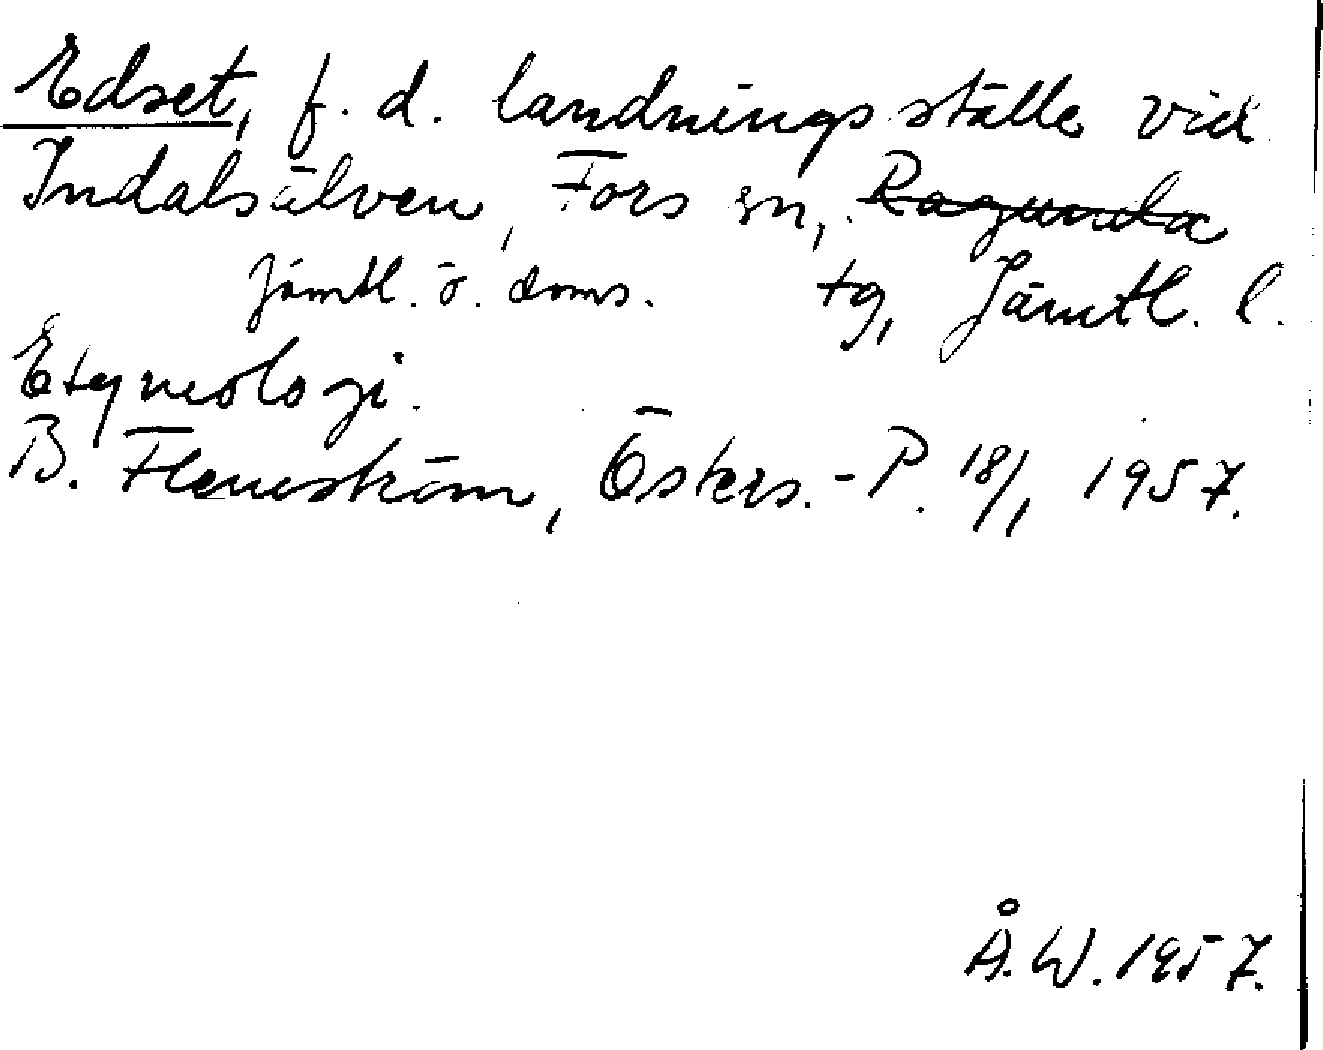 Edset, f. d. landningsställe vid
Indalsälven, Fors sn, Ragunda
Jämtl. ö. doms. tg, Jämtl. l.
Etymologi.
B. Flemström, Österss.-P. 18/1 1957.
Å.W. 1957.